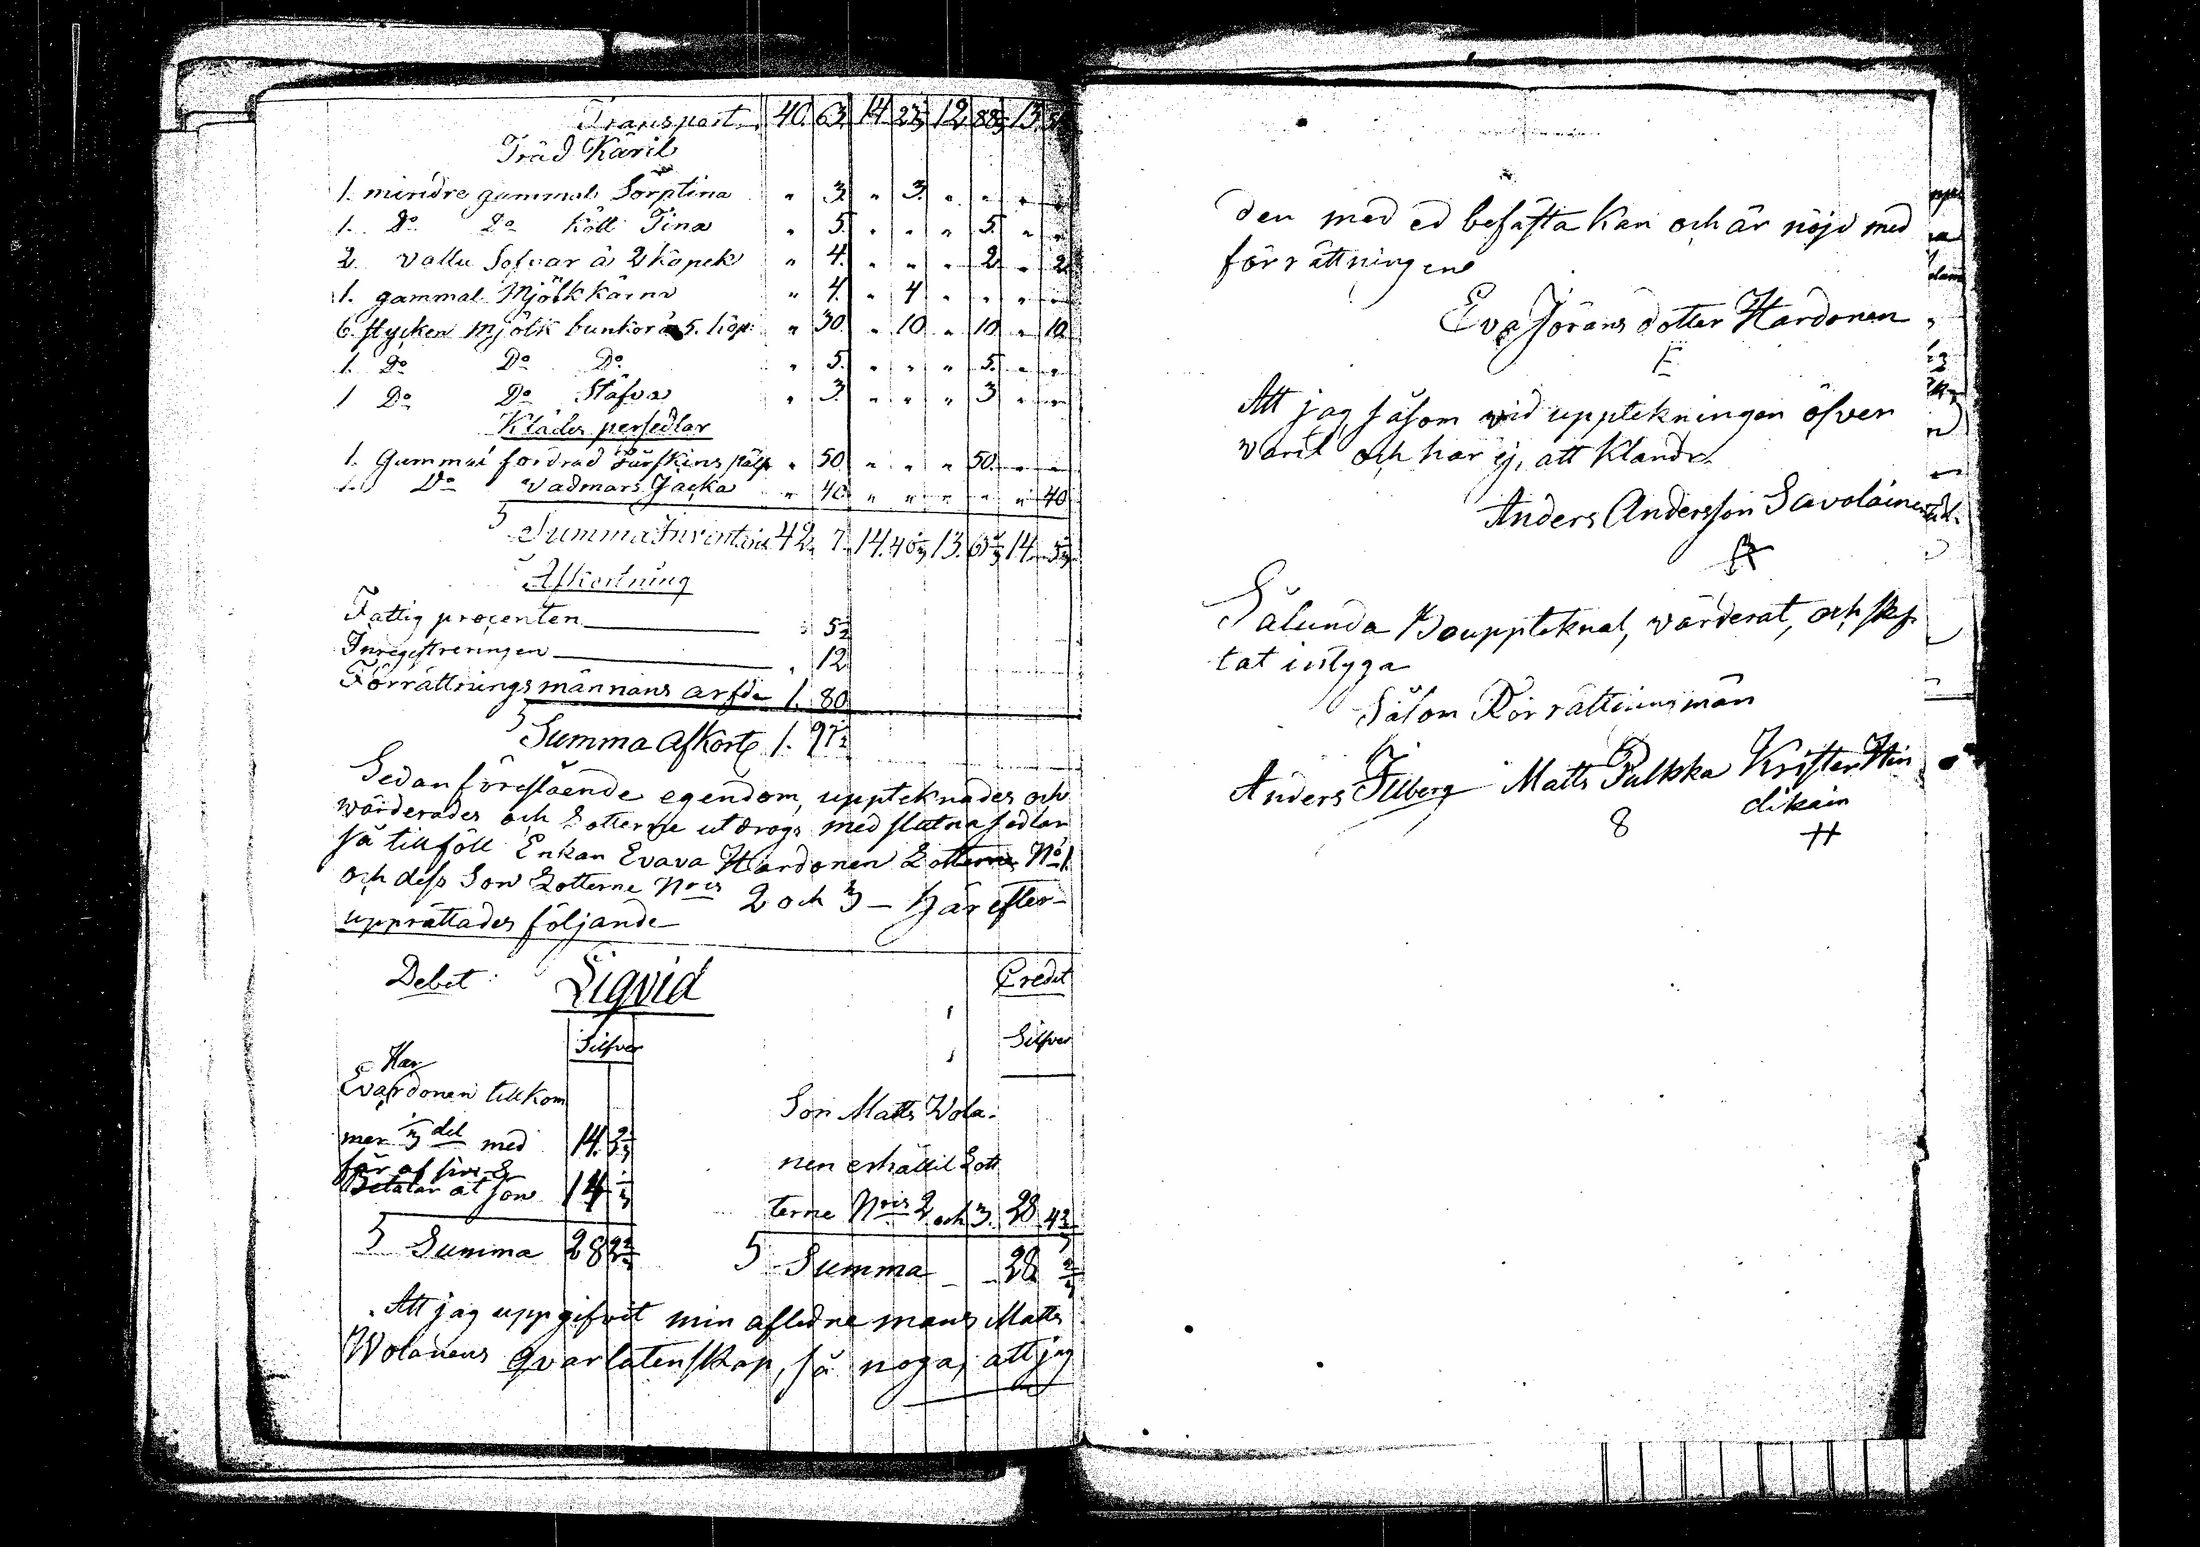 Transport. 40. 63. 14. 27⅔ 12 88⅔ 13.
Träd Käril
1. mindre gammal Sörptina " 3. " 3. " " " "
1. Do Do Köll Tina " 5. " " " 5. " "
2. vattu Sofvar á 2 kopek " 4. " " " 2. " 2.
1. gammal Mjölk kärna " 4. " 4 " " " "
6. stycken mjölk bunkor á 5. kop: " 30. " 10 " 10. " 10.
1. Do Do Do " 5. " " " 5. " "
1 Do Do Stäfva " 3. " " " 3 " "
Kläder persedlar
1. Gammal fordrad fårskins päls " 50 " " " 50. " "
1. Do vadmars Jacka " 40 " " " " " 40
Summa Inventari 42. 7. 14. 40⅔ 13. 14.
Afkortning
Fattig procenten 5½
Inregistreringen 12
Förrättningsmännans arfde 1. 80
Summa Afkorte 1. 97½
Sedan förestående egendom, uppteknades och
wärderades och Lotterne utdrogs med slutna sedlar
så tillföll Enkan Evava Hardonen Lotterne No 1.
och dess Son Lotterne Nris 2 och 3 – Här efter-
upprättades följande
Debet: Liqvid Credit
Silfver Silfver
Har
Evardonen tillkom
mer ⅓ del med 14.
får af sin
Betalar åt son 14
Summa 28
Son Matts Wola-
nen erhållit Lott
terne Nris 2 och 3. 28 4⅔
Summa 28
Att jag uppgifvit min afledne mans Matts
Wolanens qvarlatenskap, så noga, att jag
den med ed befästa kan och är nöjd med
förrättningene
Eva Jörans dotter Hardonen
E
Att jag såsom vid upptekningen öfver
varit och har ej, att klandr.
Anders Andersson Savolainen
Sålunda Bouppteknat, wärderat, och skf
tat intyga
Såsom Förrättninsmän
Anders Filberg Matts Pulkka Krister Hin
dikain
8 H